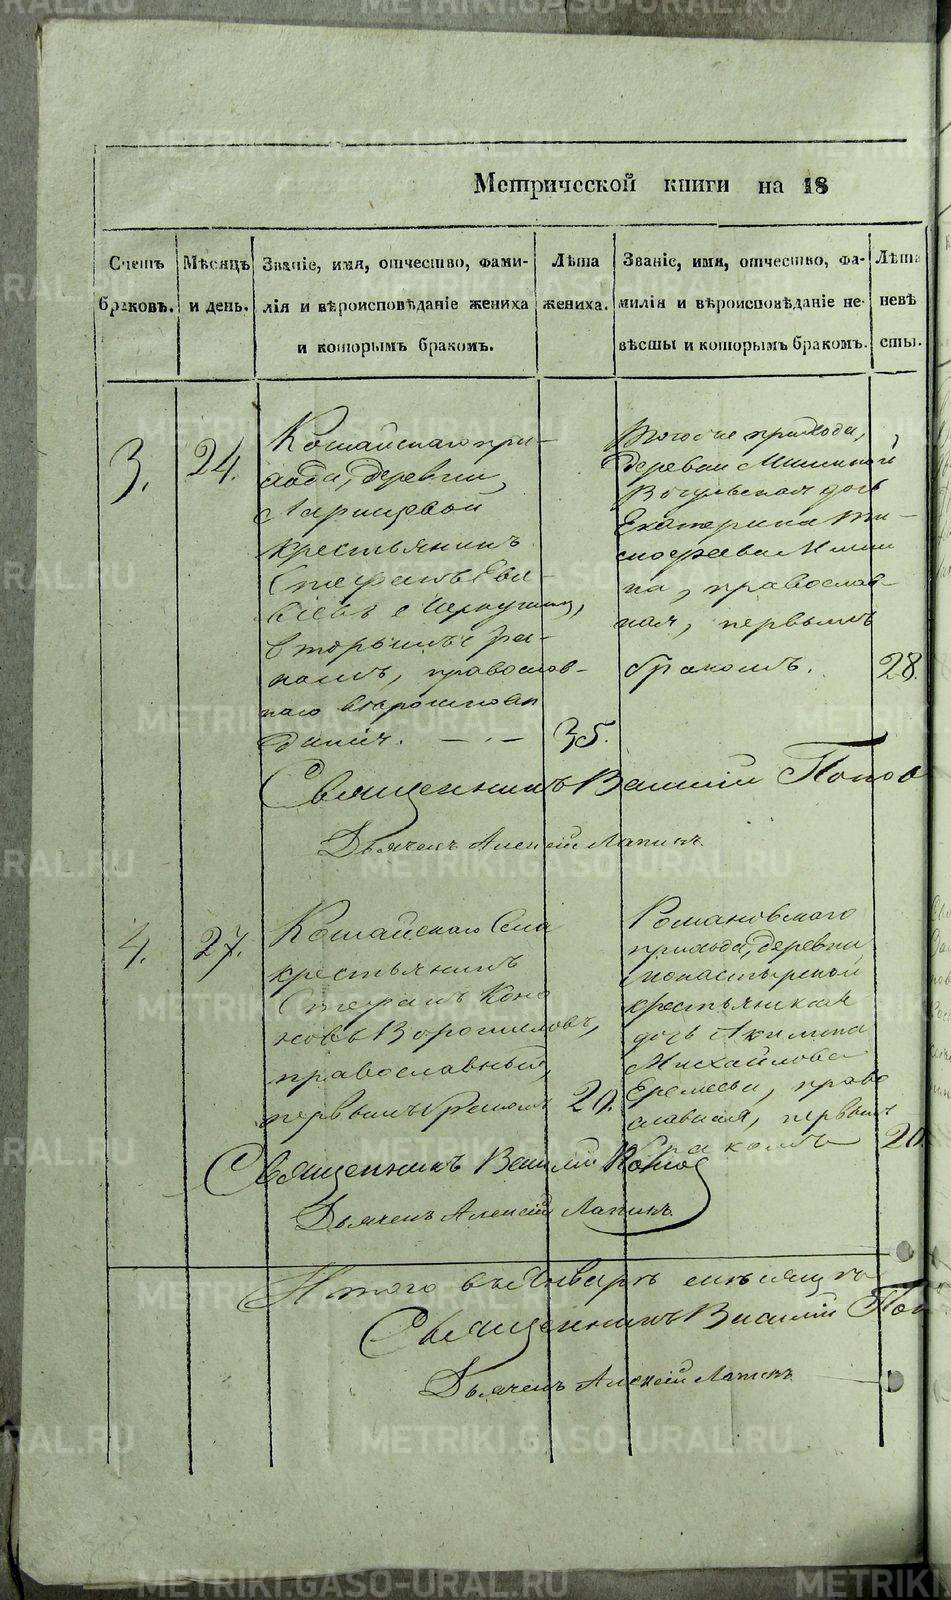 Метрической книги на 18
Счетъ браковъ.
Мѣсяцъ и день.
Званіе, имя, отчество, фами-
лія и вѣроисповѣданіе жениха
и которымъ бракомъ.
Лѣта
жениха.
Званіе, имя, отчество, фа-
милія и вѣроисповѣданіе не-
вѣсты и которымъ бракомъ.
Лѣта
невѣ
сты.
3.
24.
Кошайскаго при-
хода, деревни
Ларишевой
крестьянинъ
Стефанъ Евс-
вторымъ бра-
комъ, православ-
наго вѣроисповѣ
данія. — „ —
35.
Тогоже прихода,
деревни Мишиной
Вогульская дочь
Екатерина Ти-
мофеева Миши
на, православ-
ная, первымъ
бракомъ.
28.
Священникъ Василій Попов
Дьячекъ Алексій Лапинъ.
4.
27.
Кошайскаго Села
крестьянинъ
Стефанъ Коно
новъ Ворошиловъ,
православный,
первымъ бракомъ
20.
Романовскаго
прихода, деревни
монастырской
крестьянская
дочь Акилина
Михайлова
Еремеева, право
славная, первымъ
бракомъ
20.
Священникъ Василій Попов
Дьячекъ Алексій Лапинъ.
Итого въ Январѣ мѣсяцѣ
Священникъ Василій Поп
Дьячекъ Алексій Лапинъ
METRIKI.GASO-URAL.RU